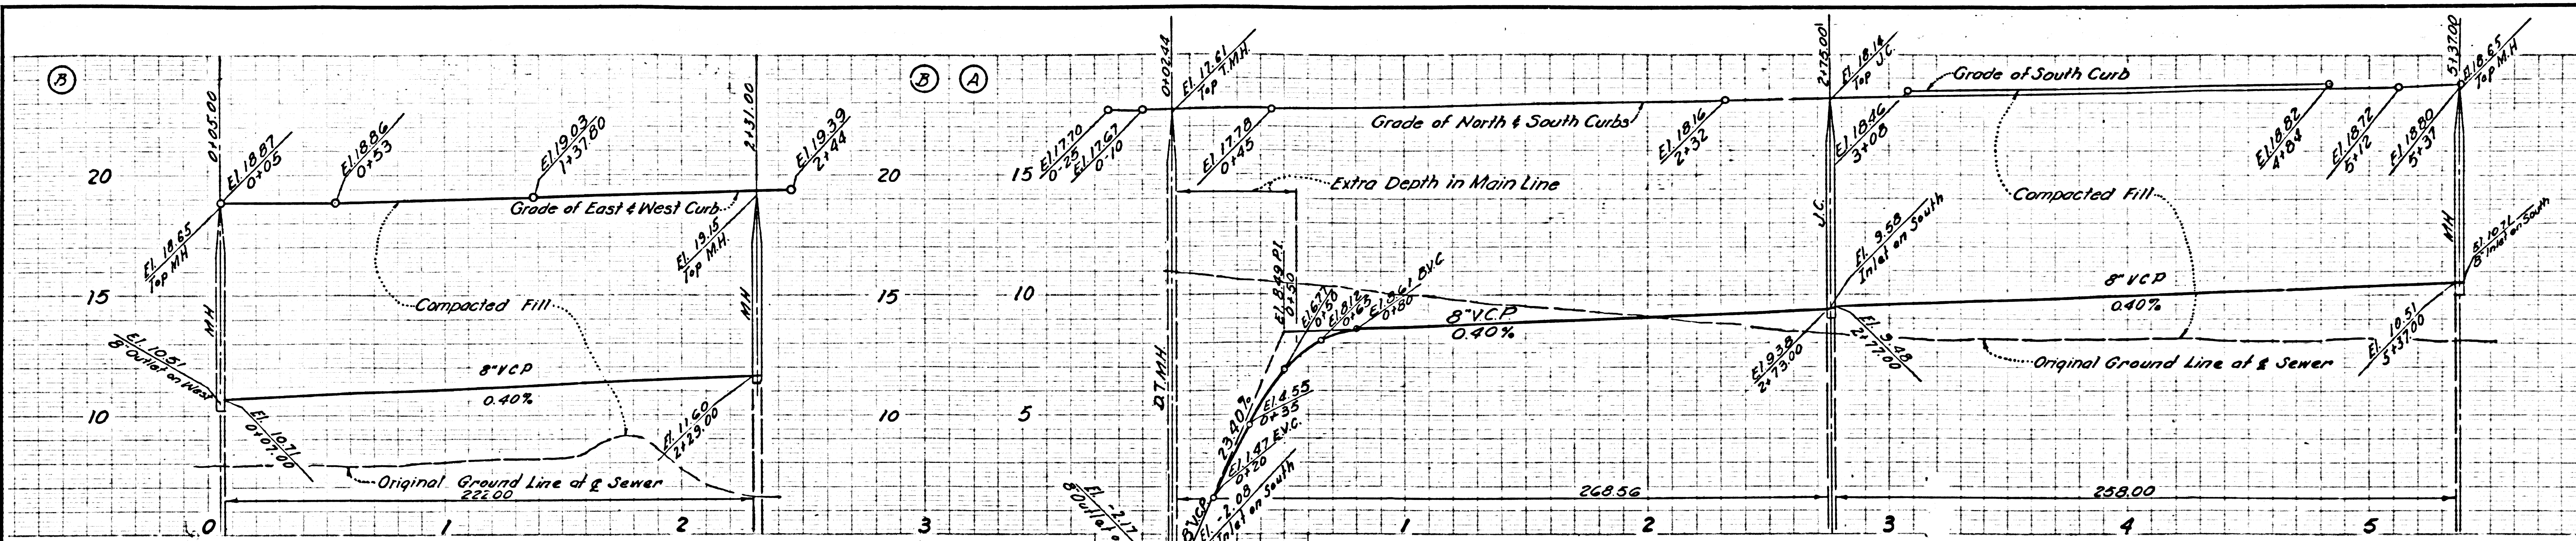 B
0+05.00
El. 18.87
0+05
El. 18.86
0+53
El. 19.03
1+37.80
2+31.00
El. 19.39
2+44
20
Grade of East & West Curb
El. 18.65
Top MH
El. 19.15
Top M.H.
15
Compacted Fill
MH
MH
El. 10.51
8" Outlet on West
8" VCP
0.40%
10
El. 10.71
0+07.00
El. 11.60
2+29.00
Original Ground Line at ℄ Sewer
222.00
0
1
2
3
B
A
20
15
15
10
10
5
0+02.44
El. 17.61
Top T.M.H.
El. 17.70
0-25
El. 17.67
0-10
El. 17.78
0+45
Grade of North & South Curbs
El. 18.16
2+32
2+75.00
El. 18.14
Top J.C.
El. 18.46
3+08
Grade of South Curb
El. 18.82
4+84
El. 18.72
5+12
El. 18.80
5+37
5+37.00
El. 18.65
Top M.H
Extra Depth in Main Line
Compacted Fill
J.C.
El. 9.58
Inlet on South
MH
El. 10.71
8" Inlet on South
El. 8.49 P.I.
0+50
El. 6.77
0+50
El. 8.12
0+65
El. 8.61 B.V.C.
0+80
8" V.C.P.
0.40%
8" VCP
0.40%
D.T.M.H.
23.40%
El. 4.55
0+35
El. 1.47 E.V.C.
0+20
El. 9.38
2+73.00
El. 9.48
2+77.00
Original Ground Line at ℄ Sewer
El. 10.51
5+37.00
El. -2.17
8" Outlet
8" V.C.P.
El. -2.08
Inlet on South
268.56
258.00
1
2
3
4
5